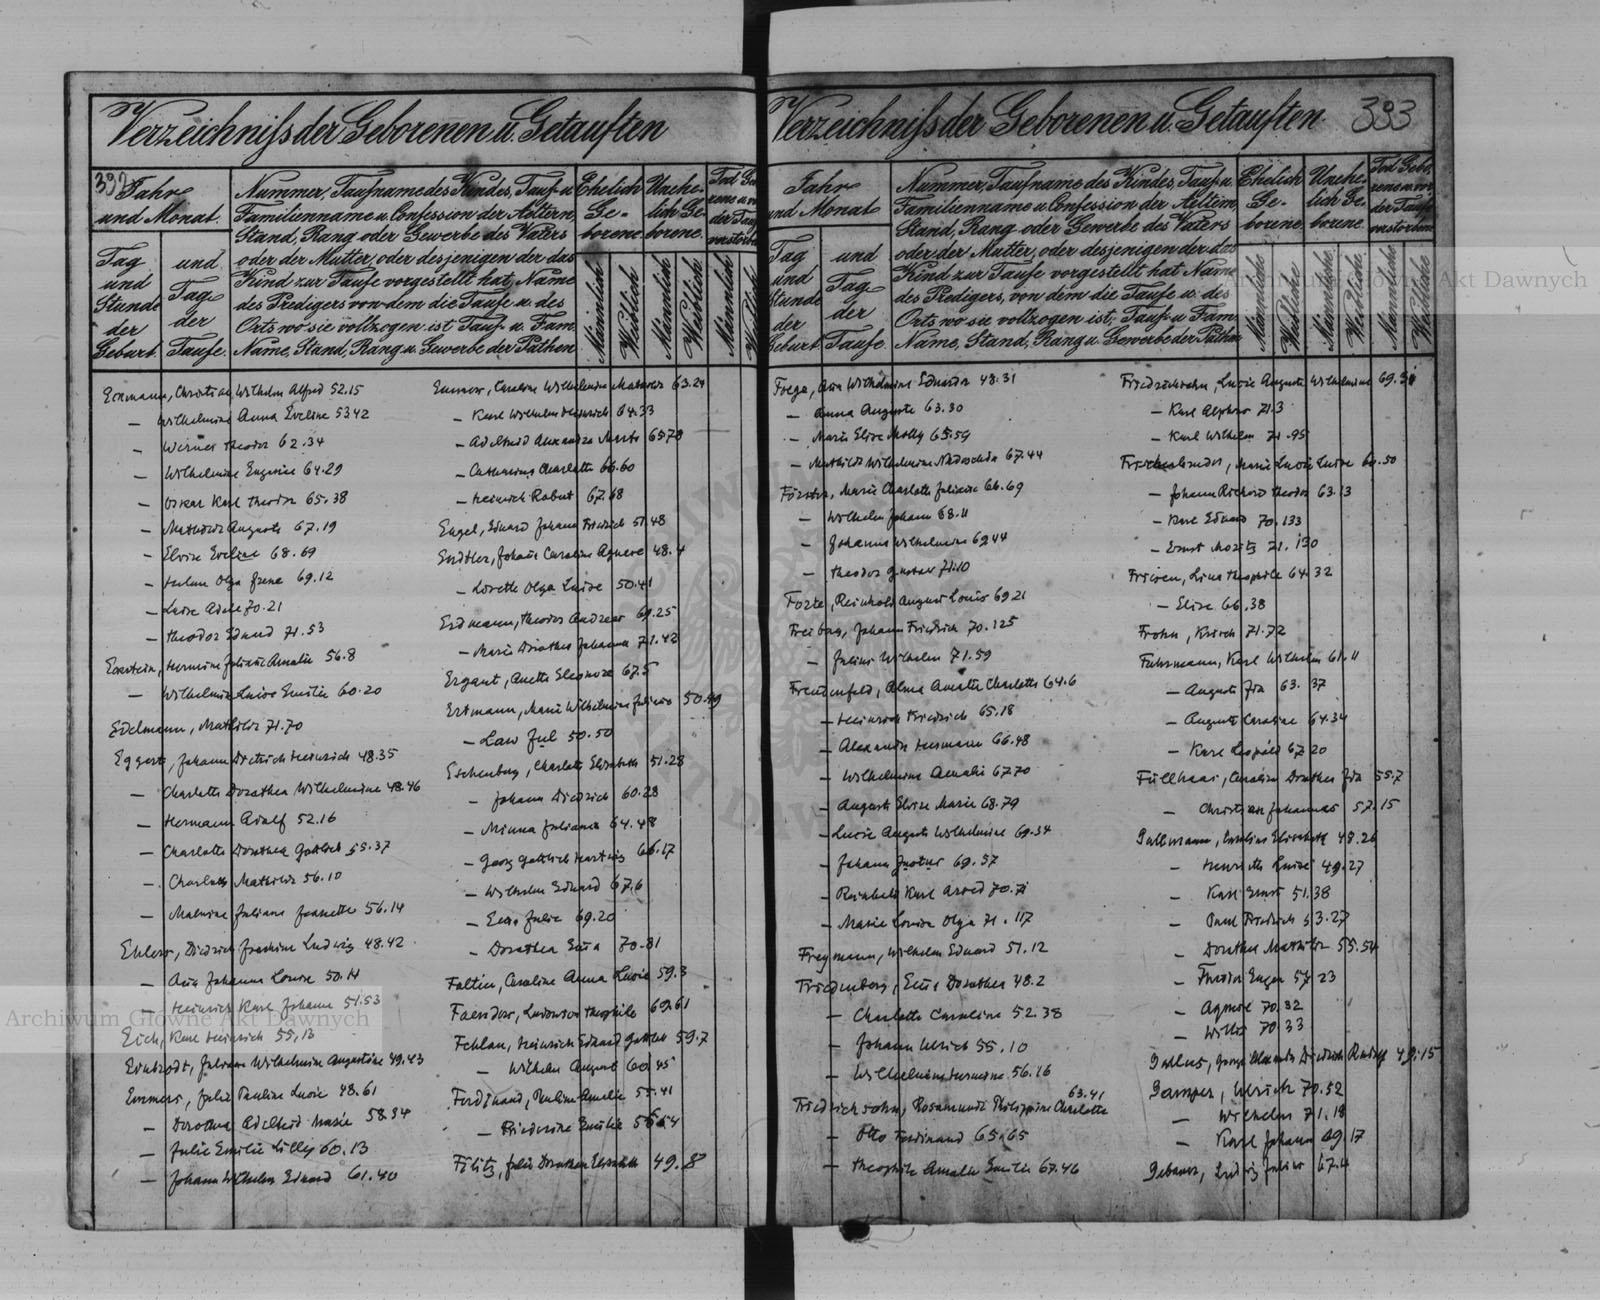 Verzeichniſs der Geborenen u. Getauften
392
Jahr
und Monat.
Tag
und
Stunde
der
Geburt.
und
Tag
der
Taufe.
Nummer, Taufname des Kindes, Tauf- u.
Familienname u. Confession der Aeltern,
Stand, Rang oder Gewerbe des Vaters
oder der Mutter, oder desjenigen der das
Kind zur Taufe vorgestellt hat, Name
des Predigers von dem die Taufe u. des
Orts wo sie vollzogen ist Tauf- u. Fam.
Name, Stand, Rang u. Gewerbe der Pathen
Ehelich
Ge-
borene.
Unehe-
lich Ge-
borene.
Männlich
Weiblich
Männlich
Weiblich
Männlich
Eckmann, Christian Wilhelm Alfred 52.15
— Wilhelmine Anna Eveline 53 42
— Werner Theodor 62.34
— Wilhelmine Eugenie 64.29
— Oskar Karl Theodor 65.38
— Mathilde Auguste 67.19
— Elvire Eveline 68.69
— Helene Olga Irene 69.12
— Luise Adele 70.21
— Theodor Eduard 71.53
Eckstein, Hermine Juliane Amalie 56.8
— Wilhelmine Luise Emilie 60.20
Edelmann, Mathilde 71.70
Eggert, Johann Dietrich Heinrich 48.35
— Charlotte Dorothea Wilhelmine 48.46
— Hermann Adolf 52.16
— Charlotte Dorothea Gottlieb 55.37
— Charlotte Mathilde 56.10
— Malwine Juliane Jeanette 56.14
Ehlers, Diedrich Joachim Ludwig 48.42
— Johanna Louise 50.14
— Heinrich Karl Johann 51.53
Eich, Karl Heinrich 55,13
Einbrodt, Juliane Wilhelmine Augustine 49.43
Emmers, Julie Pauline Lucie 48.61
— Dorothea Adelheid Marie 58.34
— Julie Emilie Lilly 60.13
— Johann Wilhelm Eduard 61.40
Emmers, Caroline Wilhelmine Mathilde 63.24
— Karl Wilhelm Heinrich 64.33
— Adelheid Alexandra Marta 65.78
— Catharina Charlotte 66.60
— Heinrich Robert 67.68
Engel, Eduard Johann Friedrich 51.48
Endtler, Johann Caroline Agnese 48.4
— Lorette Olga Luise 50.41
Erdmann, Theodor Andreas 69.25
— Marie Dorothea Johanna 71.42
Ergant, Anette Eleonore 67.5
Ertmann, Marie Wilhelmine Juliane 50.49
— 50.50
Eschenberg, Charlotte Elisabeth 51.28
— Johann Diedrich 60.28
— Minna Juliane 64.48
— Georg Gottlieb Hartwig 66.17
— Wilhelm Eduard 67.6
— Julie 69.20
— Dorothea 70.81
Faltin, Caroline Anna Lucie 59.3
Faender, Ludowica Theophile 69.61
Fehlau, Heinrich Eduard Gottlieb 59.7
— Wilhelm August 60.45
Ferdinand, Pauline Amalie 55.41
— Friederike Emilie
Filitz, Julie Dorothea Elisabeth 49.8
Verzeichniſs der Geborenen u. Getauften
393
Jahr
und Monat
Tag
und
Stunde
der
Geburt.
und
Tag
der
Taufe.
Nummer, Taufname des Kindes, Tauf- u.
Familienname u. Confession der Aeltern,
Stand, Rang oder Gewerbe des Vaters
oder der Mutter, oder desjenigen der das
Kind zur Taufe vorgestellt hat Name
des Predigers, von dem die Taufe u. des
Orts wo sie vollzogen ist, Tauf- u. Fam.
Name, Stand, Rang u. Gewerbe der Pathen
Ehelich
Ge-
borene.
Unehe-
lich Ge-
borene
Tod Gebo-
rene u. vor
der Taufe
verstorbene
Männliche
Weibliche
Männliche
Weiblich
Männliche
Weibliche
Foege, Wilhelmine Eduarda 48.31
— Anna Auguste 63.30
— Marie Elise Molly 65.59
— Mathilde Wilhelmine 67.44
Förster, Marie Charlotte 66.69
— Wilhelm Johann 68.11
— Johanna Wilhelmine 69.44
— Theodor Gustav 71.10
Forte, Reinhold August Louis 69 21
Freiberg, Johann Friedrich 70.125
— Julius Wilhelm 71.59
Freudenfeld, Alma Amalie Charlotte 64.6
— Heinrich Friedrich 65.18
— Alexander Hermann 66.48
— Wilhelmine Amalie 67.70
— Auguste Elvire Marie 68.79
— Lucie Auguste Wilhelmine 69.34
— Johann Justus 69.57
— Reinhold Karl Arved 70.71
— Marie Louise Olga 71.117
Freymann, Wilhelm Eduard 51.12
Friedenberg, Dorothea 48.2
— Charlotte Caroline 52.38
— Johann Ulrich 55.10
— Wilhelmine Hermine 56.16
Friedrichsohn, Rosamunde Philippine Charlotte 63.41
— Otto Ferdinand 65.65
— Theophile Amalie Emilie 67.46
Friedrichsohn, Lucie Auguste Wilhelmine 69.31
— Karl Alphons 71.3
— Karl Wilhelm 71.95
Frischenbruder, Marie Lucie Luise 60.50
— Johann Richard Theodor 63.13
— Karl Eduard 70.133
— Ernst Moritz 71.130
Friesen, Lina Theophile 64.32
— Elise 66.38
Frohn, Erich 71.72
Fuhrmann, Karl Wilhelm 61.11
— Auguste Ida 63.37
— Auguste Caroline 64.34
— Karl Leopold 67.20
Füllhaas, Caroline Dorothea Ida 55.7
— Christian Johannes 57.15
Gallmann, Caroline Elisabeth 48.26
— Henriette Luise 49.27
— Karl Ernst 51.38
— Paul Friedrich 53.27
— Dorothea Mathilde 55.54
— Eugen 57.23
— Agnese 70.32
— Willi 70.33
Gallus, George Alexander Diedrich Rudolf 49.15
Gamper, Ulrich 70.52
— Wilhelm 71.18
— Karl Johann 49.17
Gebauer, Ludwig Julius 67.4
Archiwum Główne Akt Dawnych
Archiwum Główne Akt Dawnych